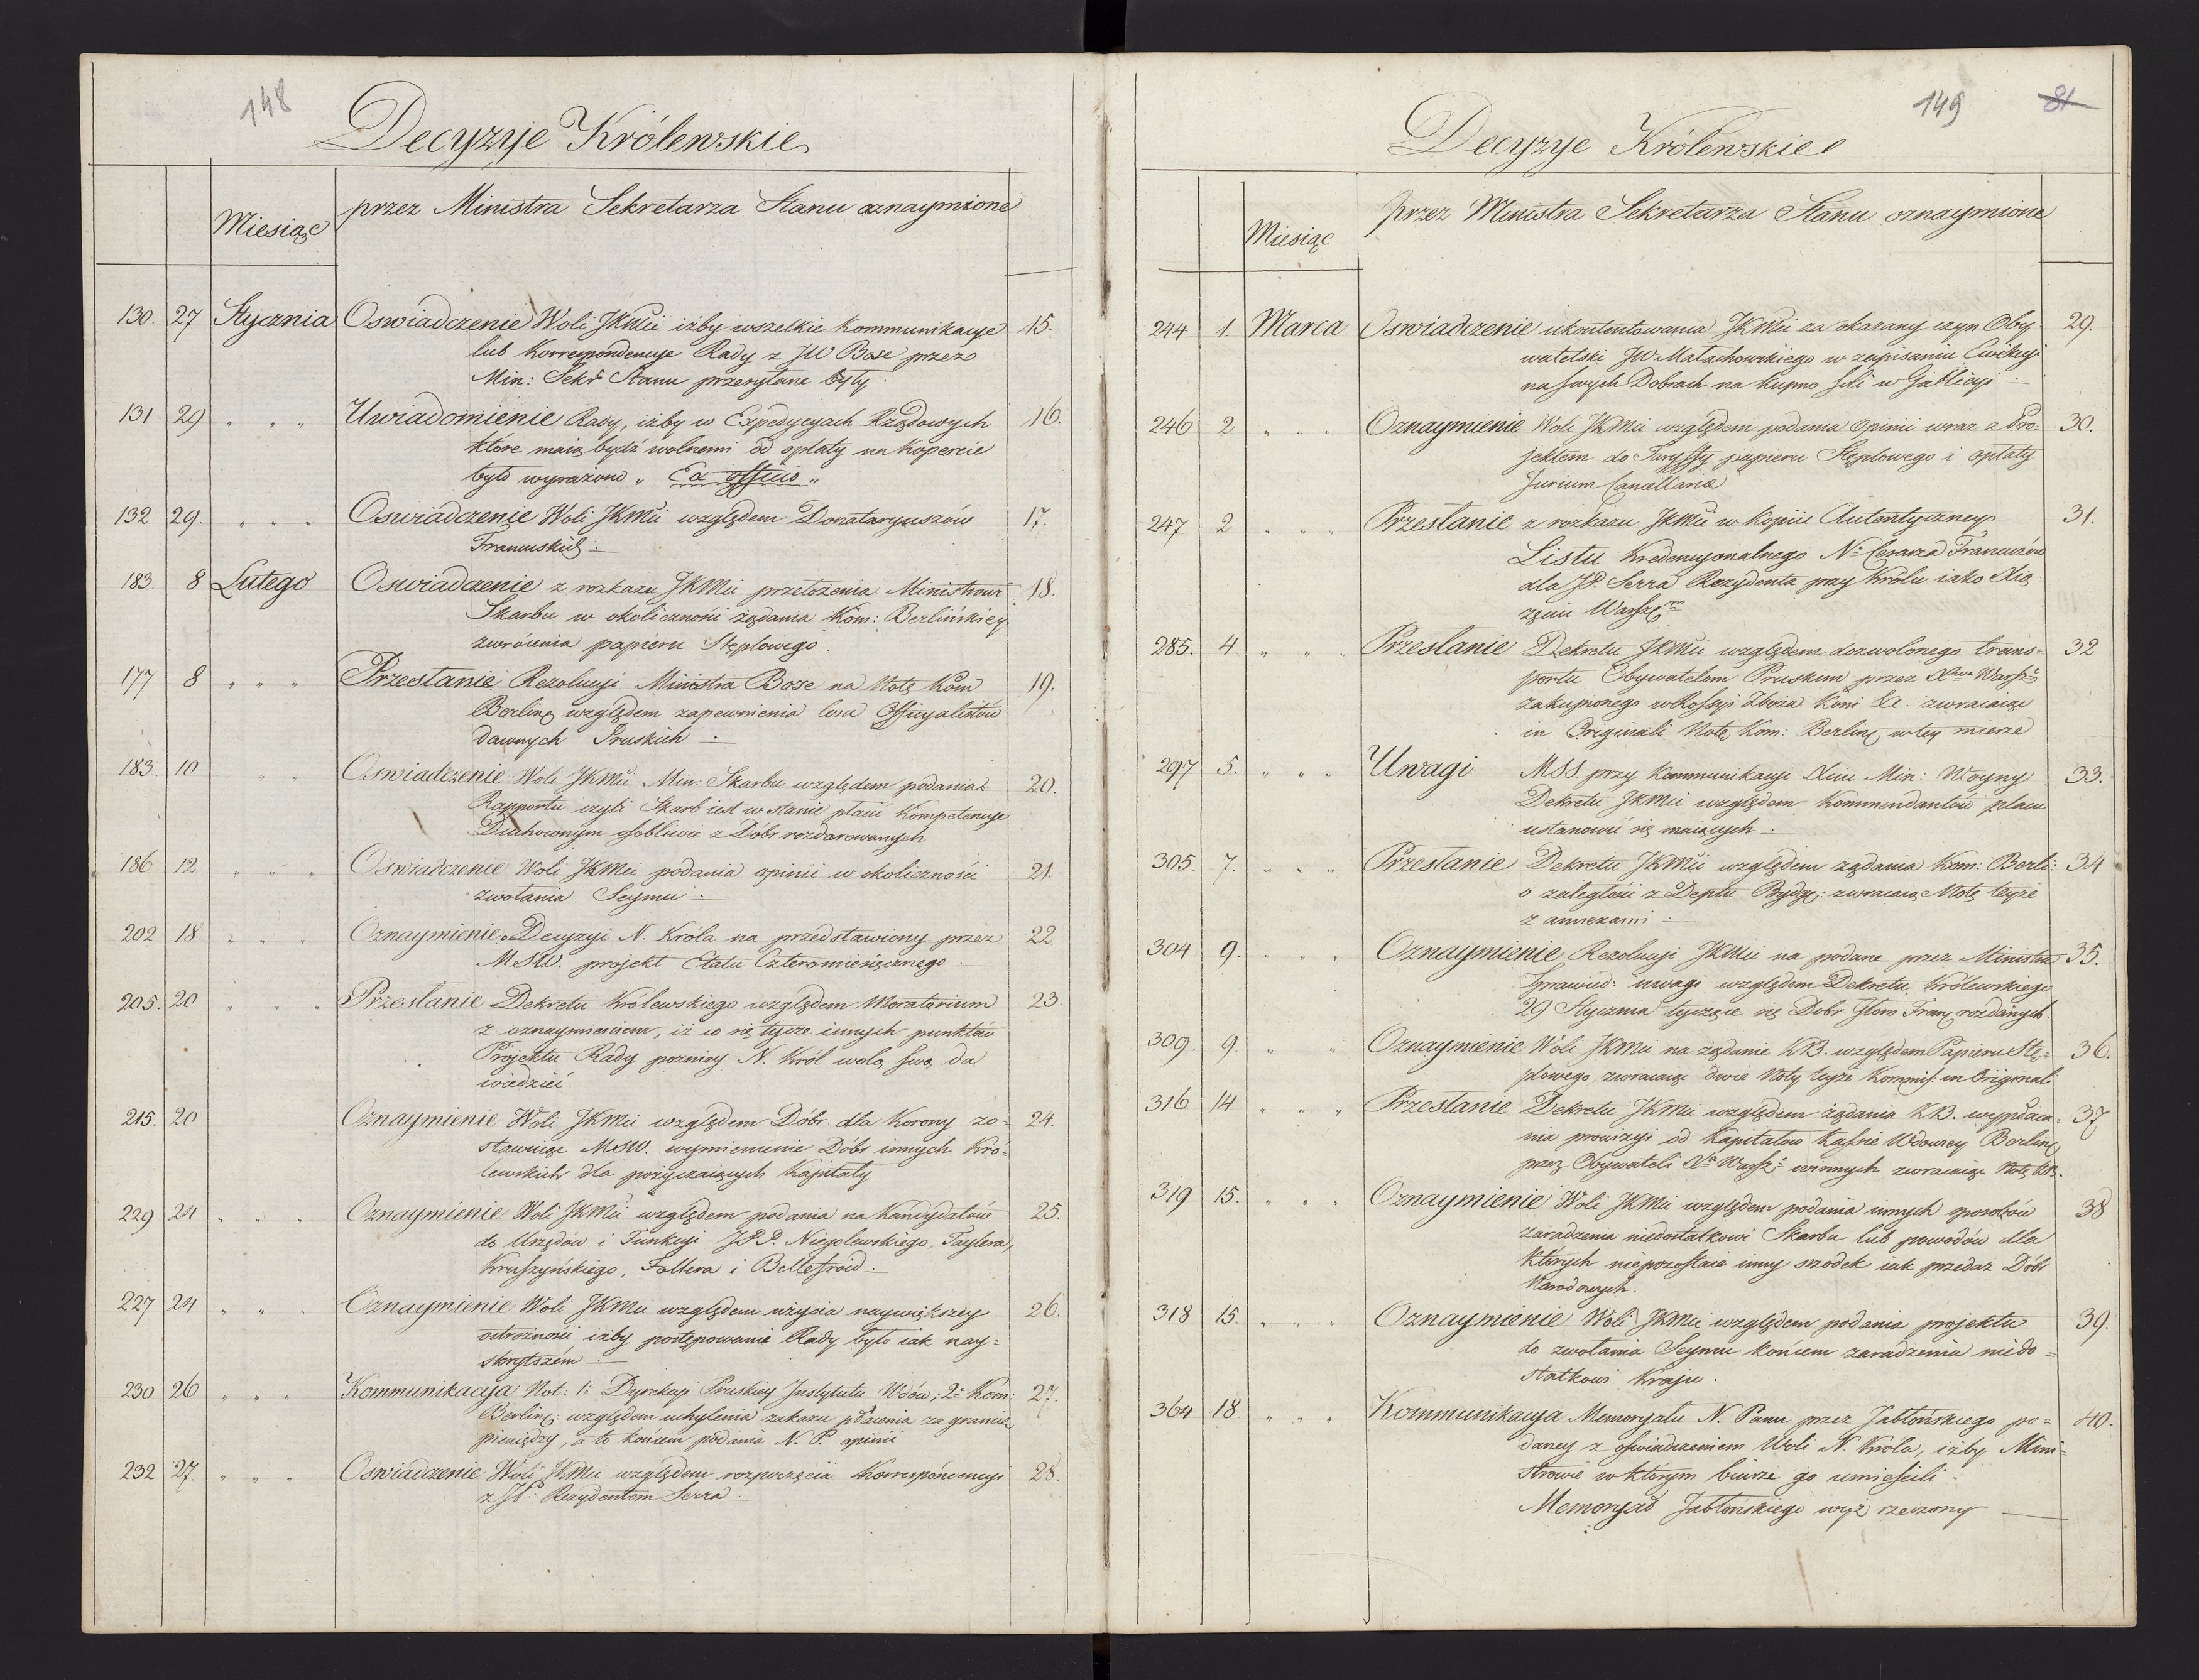 148
Decyzyje Królewskie
Miesiąc przez Ministra Sekretarza Stanu oznaymione
130. 27 Stycznia Oswiadczenie Woli JKMci iżby wszelkie kommunikacye 15.
lub Korrespondencye Rady z JW Bose przez
Min: Sekr Stanu przesyłane były.
131 29 " " " Uwiadomienie Rady, iżby w Expedycyach Rządowych 16.
które maią bydź wolnemi od opłaty na kopercie
było wyrażono „ Ex officio „
132 29. " " " Oswiadczenie Woli JKMci względem Donataryuszów 17.
Francuskich.
183 8 Lutego Oswiadczenie z rozkazu JKMci przełożenia Ministrowi 18.
Skarbu w okoliczności żądania Kom: Berlińskiey
zwrócenia papieru Stęplowego.
177 8 " " " Przesłanie Rezolucyi Ministra Bose na Notę Kom 19.
Berliną względem zapewnienia losu Officyalistów
dawnych Pruskich.
183. 10 " " Oswiadczenie Woli JKMci Min: Skarbu względem podania 20.
Rapportu czyli Skarb iest w stanie płacić Kompetencye
Duchownym osobliwie z Dóbr rozdarowanych
186 12 " " " Oswiadczenie Woli JKMci podania opinii w okoliczności 21.
zwołania Seymu.
202 18 " " " Oznaymienie Decyzyi N. Króla na przedstawiony przez 22
MSW. projekt Etatu Czteromiesięcznego.
205. 20 " " " Przesłanie Dekretu Królewskiego względem Moratorium 23.
z oznaymieniem, iż co się tycze innych punktów
Projektu Rady pozniey N. Król wolą swą da
wiedzieć
215. 20 Oznaymienie Woli JKMci względem Dóbr dla Korony zo= 24.
stawuiąc MSW. wymienienie Dóbr innych Kró=
lewskich dla pożyczaiących Kapitały
229 24 " " " Oznaymienie Woli JKMci względem podania na Kandydatów 25.
do Urzędów i Funkcyi JPP. Niegolewskiego, Taylera,
Kruszyńskiego, Foltera i Bellefroid.
227 24 " " " Oznaymienie Woli JKMci względem użycia naywiększey 26.
ostrożności iżby postępowanie Rady było iak nay=
skrytszém.
230 26 " " " Kommunikacya Not: 1: Dyrekcyi Pruskiey Instytutu Wdów; 2: Kom: 27.
Berliną: względem uchylenia zakazu płacenia za granicę
pieniędzy, a to końcem podania N. P. opinii
232 27. " " " Oswiadczenie Woli JKMci względem rozpoczęcia Korrespondencyi 28.
z JP: Rezydentem Serra.
149 81
Decyzye Królewskie
Miesiąc przez Ministra Sekretarza Stanu oznaymione
244 1. Marca Oswiadczenie ukontentowania JKMci za okazany czyn Oby= 29.
watelski JW Małachowskiego w zapisaniu Ewikcyi
na swych Dobrach na kupno soli w Gallicyi
246 2 " " " Oznaymienie Woli JKMci względem podania Opinii wraz z Pro= 30.
jektem do Taryffy papieru Stęplowego i opłaty
Jurium Cancellariæ
247 2 " " " Przesłanie z rozkazu JKMci w Kopii Autentyczney 31.
Listu Kredencyonalnego N: Cesarza Francuzów
dla JP. Serra Rezydenta przy Królu iako Xią=
zęciu Warsz
285. 4 " " " Przesłanie Dekretu JKMci względem dozwolonego trans= 32
portu Obywatelom Pruskim przez Warsz
zakupionego w Rossyi Zboża Koni &c. zwracaiąc
in Originali Notę Kom: Berliną w tey mierze
297 5. " " " Uwagi MSS. przy Kommunikacyi Xciu Min: Woyny 33.
Dekretu JKMci względem Kommendantów placu
ustanowić się maiących.
305. 7. " " " Przesłanie Dekretu JKMci względem żądania Kom: Berli: 34
o zaległości z Deptu Bydg: zwracaiąc Notę teyże
z annexami
304 9. " " " Oznaymienie Rezolucyi JKMci na podane przez Ministra 35.
Sprawied: uwagi względem Dekretu Królewskiego
29 Stycznia tyczące się Dobr Franc rozdanych
309. 9. " " Oznaymienie Woli JKMci na żądanie KB. względem Papieru Stę= 36.
plowego zwracaiąc dwie Noty teyże Kommiss: in Originali
316 14 " " " Przesłanie Dekretu JKMci względem żądania KB. wypłaca= 37
nia prowizyi od Kapitałow Kassie Wdowiey Berliną
przez Obywateli Warsz winnych zwracaiąc Notę KB.
319 15. " " " Oznaymienie Woli JKMci względem podania innych sposobów 38
zaradzenia niedostatkowi Skarbu lub powodów dla
których niepozostaie inny srzodek iak przedaż Dóbr
Narodowych.
318 15. " " " Oznaymienie Woli JKMci względem podania projektu 39.
do zwołania Seymu końcem zaradzenia niedo=
statkowi Kraju.
364 18. " " " Kommunikacya Memoryału N. Panu przez Jabłońskiego po= 40.
daney z oswiadczeniem Woli N. Króla, iżby Mini=
strowie w którym biurze go umiescili
Memoryał Jabłońskiego wyż rzeczony